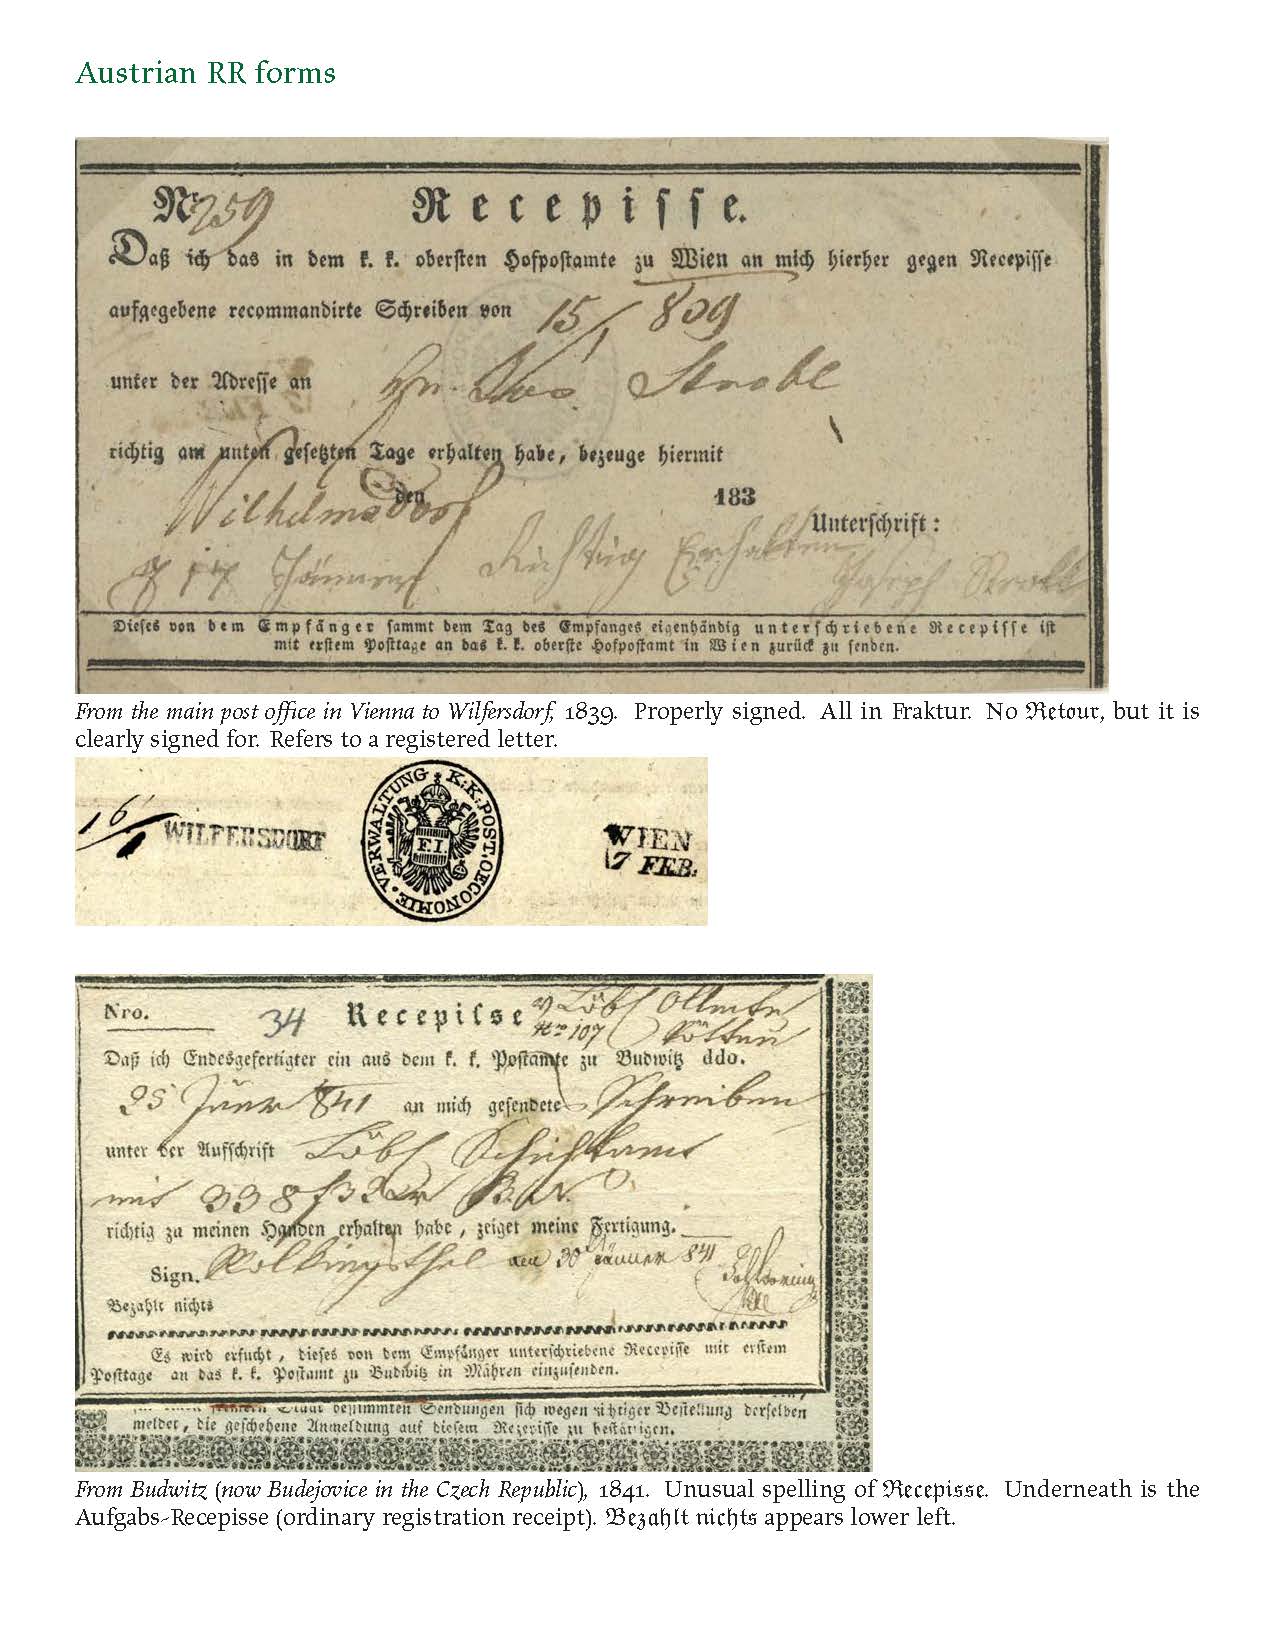 Austrian RR forms
No 259 Recepisse.
Daß ich das in dem k. k. obersten Hofpostamte zu Wien an mich hierher gegen Recepisse
aufgegebene recommandirte Schreiben von 15/1 839
unter der Adresse an Hn. Strobl
richtig am unten gesetzten Tage erhalten habe, bezeuge hiermit
Wilhelmsdorf den 183
Unterschrift:
17 Jänner Richtig Erhalten Joseph Strobl
Dieses von dem Empfänger sammt dem Tag des Empfanges eigenhändig unterschriebene Recepisse ist
mit erstem Posttage an das k. k. oberste Hofpostamt in Wien zurück zu senden.
From the main post office in Vienna to Wilfersdorf, 1839. Properly signed. All in Fraktur. No Retour, but it is
clearly signed for. Refers to a registered letter.
16/1 WILFERSDORF
K:K:POST.OECONOMIE.VERWALTUNG
F.I.
WIEN
17 FEB.
Nro. 34 Recepisse Löbl
No 107
Daß ich Endesgefertigter ein aus dem k. k. Postamte zu Budwitz ddo.
25 Jänner 841 an mich gesendete Schreiben
unter der Aufschrift Löbl
mit 338 f 32 xr B.N.
richtig zu meinen Handen erhalten habe, zeiget meine Fertigung.
Sign. den 30 Jänner 841
Bezahlt nichts
Es wird ersucht, dieses von dem Empfänger unterschriebene Recepisse mit erstem
Posttage an das k. k. Postamt zu Budwitz in Mähren einzusenden.
bestimmten Sendungen sich wegen richtiger Bestellung derselben
meldet, die geschehene Anmeldung auf diesem Rezepisse zu bestätigen.
From Budwitz (now Budejovice in the Czech Republic), 1841. Unusual spelling of Recepisse. Underneath is the
Aufgabs-Recepisse (ordinary registration receipt). Bezahlt nichts appears lower left.